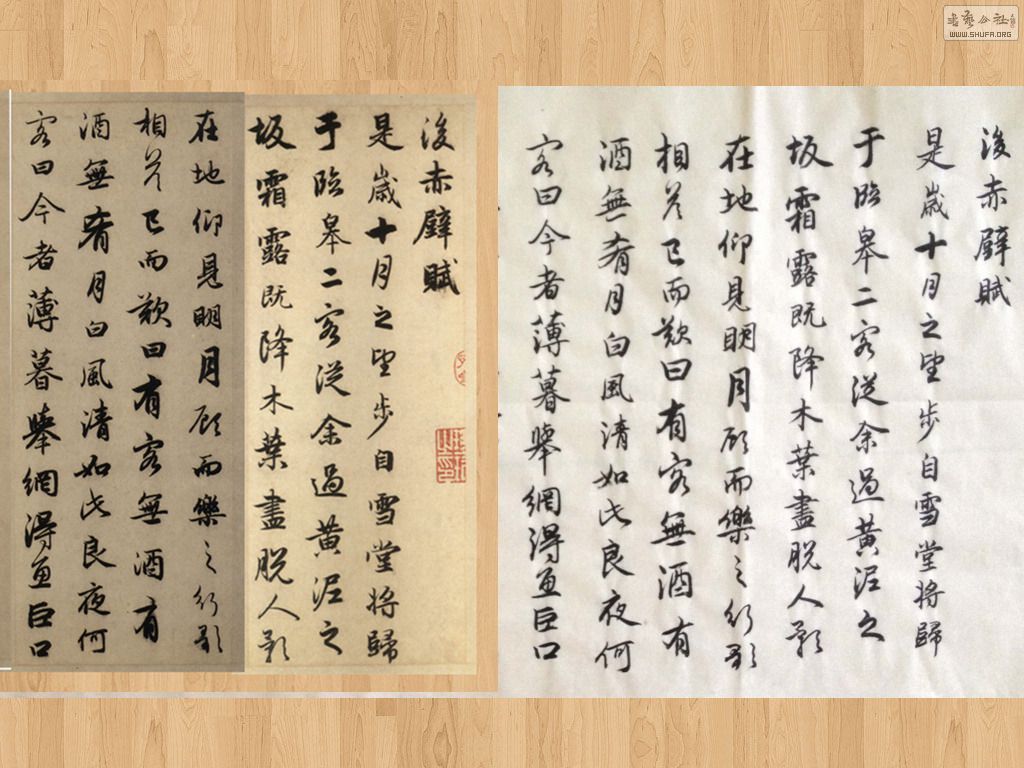 書藝公社
WWW.SHUFA.ORG
後赤壁賦
是歲十月之望步自雪堂將歸
于臨皋二客從余過黃泥之
坂霜露既降木葉盡脫人影
在地仰見明月顧而樂之行歌
相答已而歎曰有客無酒有
酒無肴月白風清如此良夜何
客曰今者薄暮舉網得魚巨口
後赤壁賦
是歲十月之望步自雪堂將歸
于臨皋二客從余過黃泥之
坂霜露既降木葉盡脫人影
在地仰見明月顧而樂之行歌
相答已而歎曰有客無酒有
酒無肴月白風清如此良夜何
客曰今者薄暮舉網得魚巨口